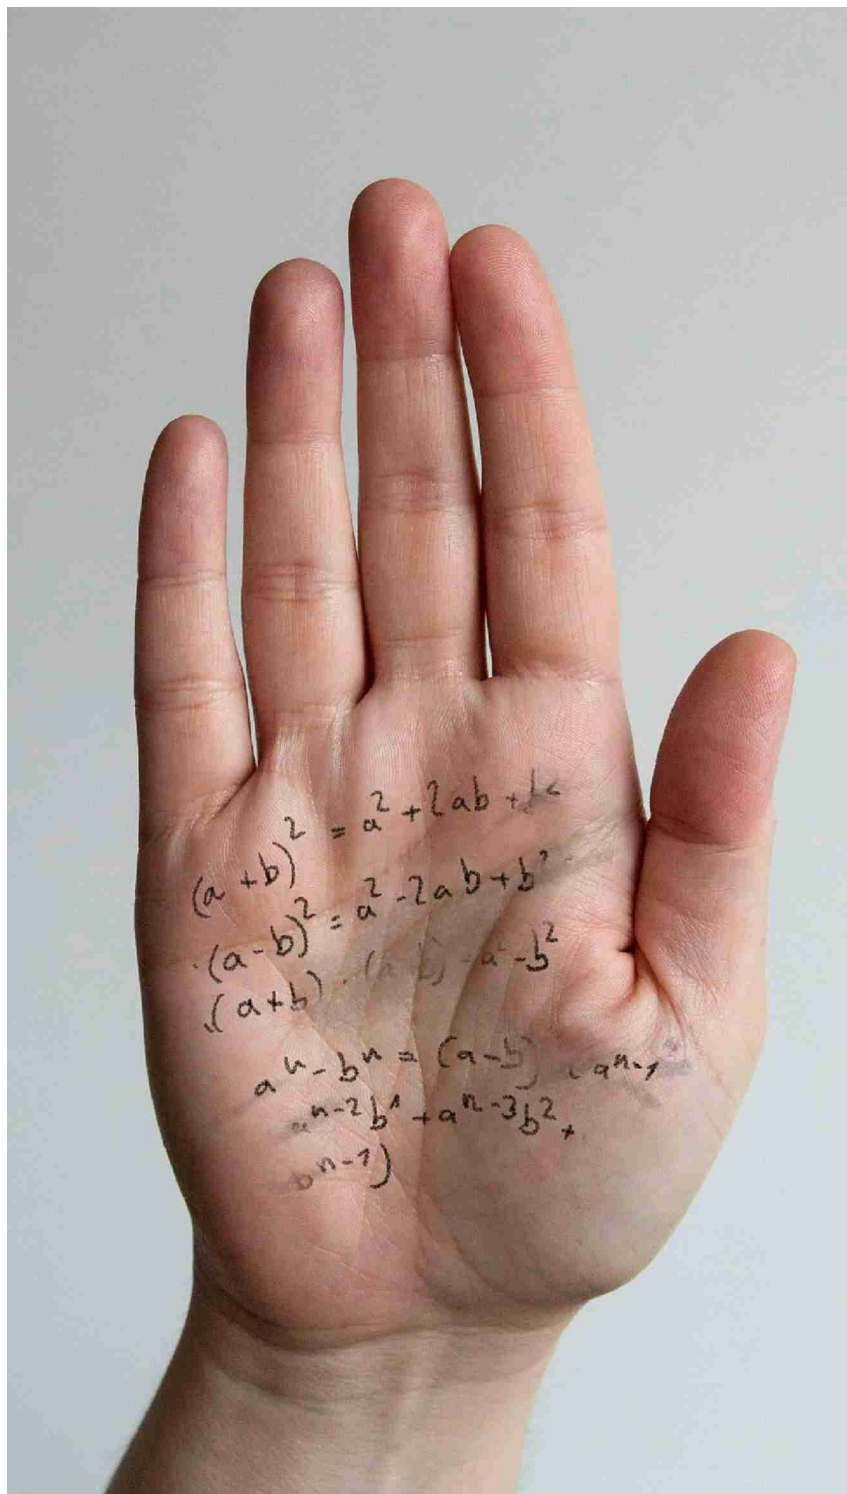 (a+b)² = a² + 2ab +
(a-b)² = a² - 2ab + b²
(a+b) · (a-b) = a² - b²
aⁿ - bⁿ = (a-b) · (aⁿ⁻¹
aⁿ⁻²b¹ + aⁿ⁻³b² +
bⁿ⁻¹)